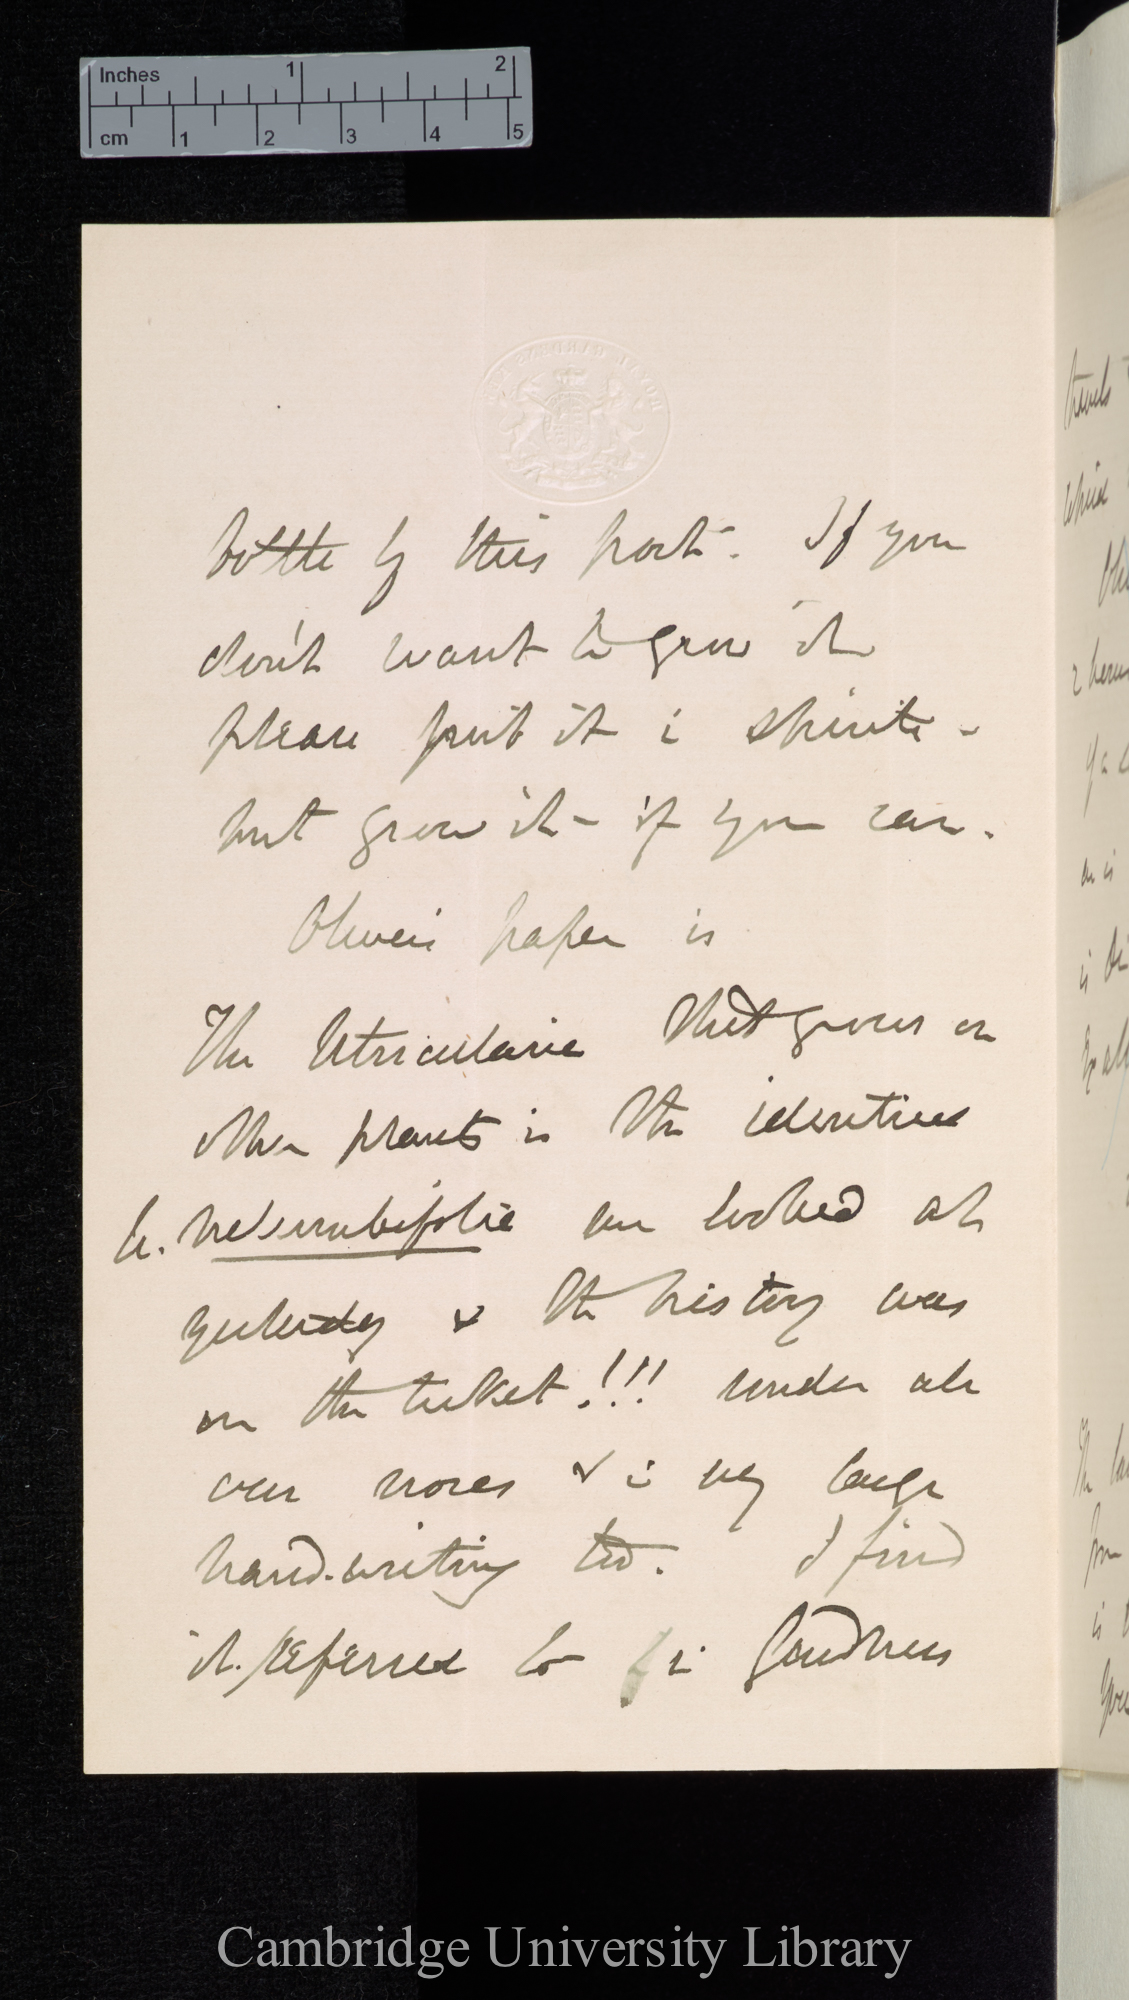 Inches 1 2
cm 1 2 3 4 5
ROYAL GARDENS KEW
bottle by this post. If you
don't want to grow it
please put it i spirits –
but grow it – if you can.
Oliver's paper is
The Utricularia that grows on
other plants is the identical
U. nelumbifolia we looked at
yesterday & the history was
on the ticket!!! under all
our noses & i very large
hand-writing too. I find
it referred to i Gardners
travels
which
is
from
is
Cambridge University Library